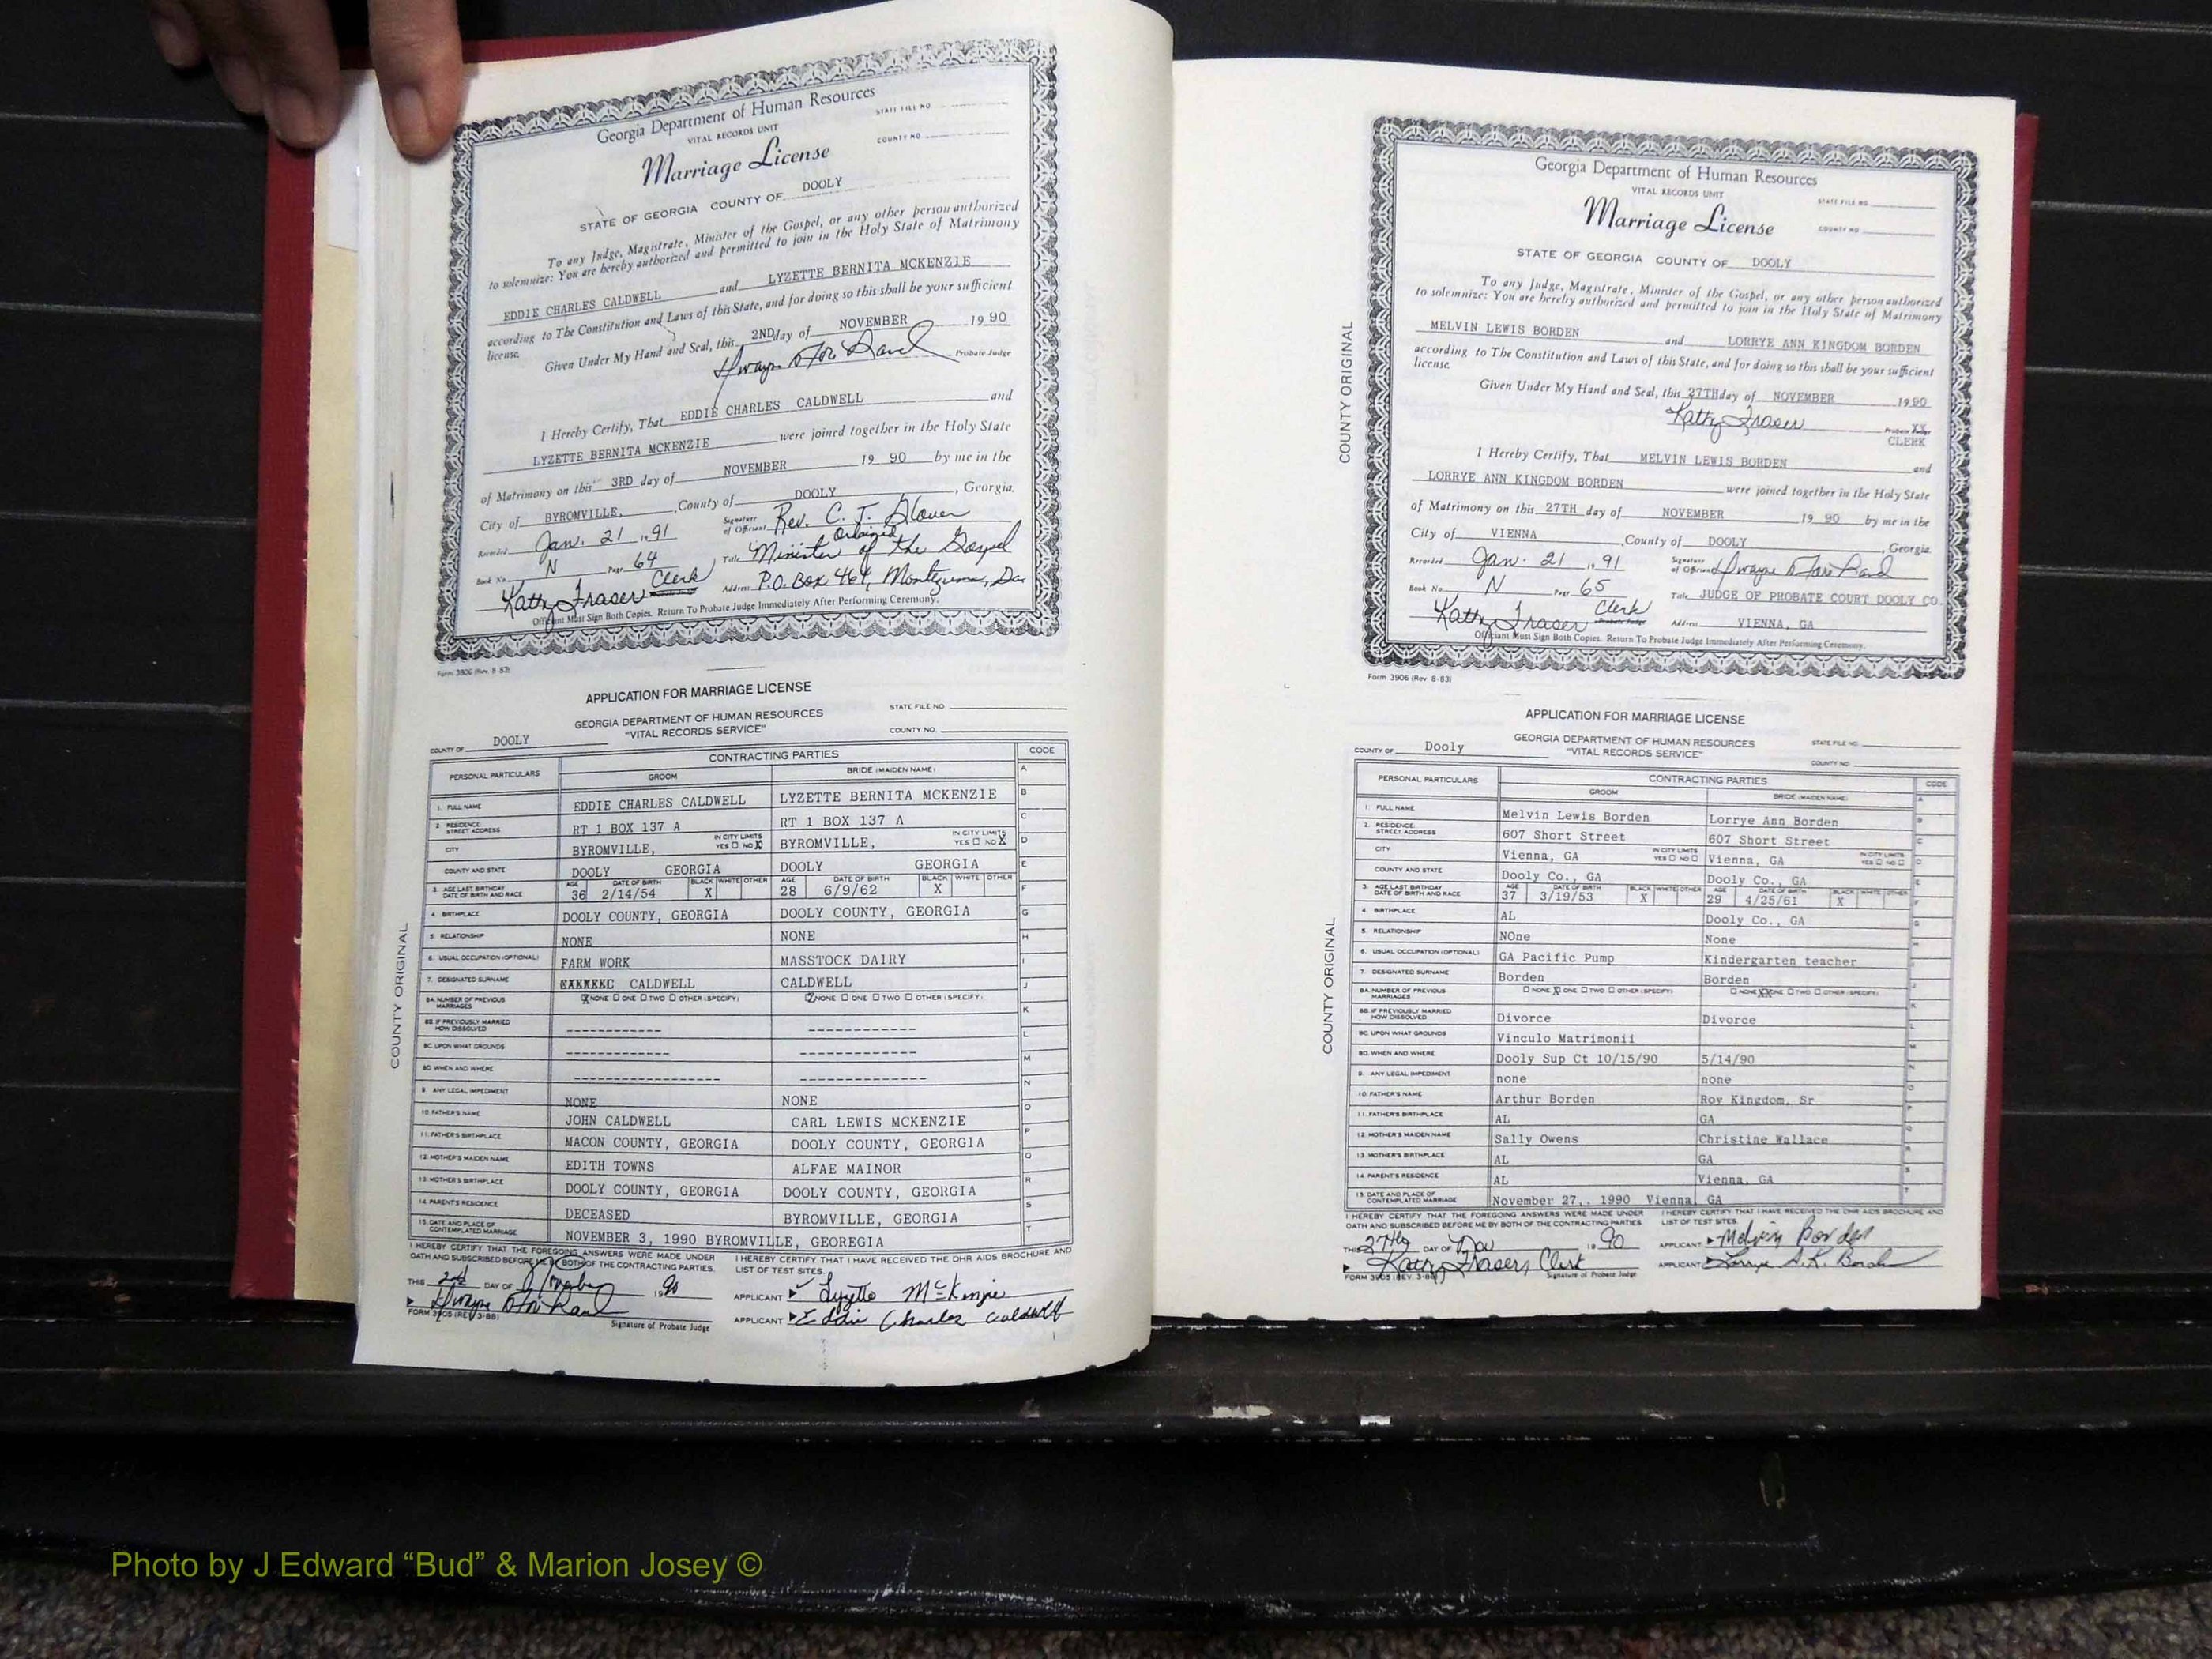 Georgia Department of Human Resources
VITAL RECORDS UNIT
STATE FILE NO
Marriage License
COUNTY NO
STATE OF GEORGIA COUNTY OF DOOLY
To any Judge, Magistrate, Minister of the Gospel, or any other person authorized
to solemnize: You are hereby authorized and permitted to join in the Holy State of Matrimony
EDDIE CHARLES CALDWELL and LYZETTE BERNITA MCKENZIE
according to The Constitution and Laws of this State, and for doing so this shall be your sufficient
license.
Given Under My Hand and Seal, this 2ND day of NOVEMBER 1990
Probate Judge
I Hereby Certify, That EDDIE CHARLES CALDWELL and
LYZETTE BERNITA MCKENZIE were joined together in the Holy State
of Matrimony on this 3RD day of NOVEMBER 19 90 by me in the
City of BYROMVILLE, County of DOOLY, Georgia.
Recorded Jan. 21 1991 Signature of Officiant Rev. C. J. Glover
Ordained
Book No. N Page 64 Title Minister of the Gospel
Kathy Fraser Clerk Address P.O. Box 464, Montezuma, Ga
Officiant Must Sign Both Copies. Return To Probate Judge Immediately After Performing Ceremony.
Form 3906 (Rev. 8-83)
APPLICATION FOR MARRIAGE LICENSE
GEORGIA DEPARTMENT OF HUMAN RESOURCES
"VITAL RECORDS SERVICE"
STATE FILE NO.
COUNTY NO.
COUNTY OF DOOLY
COUNTY ORIGINAL
PERSONAL PARTICULARS CONTRACTING PARTIES CODE
GROOM BRIDE (MAIDEN NAME)
1. FULL NAME EDDIE CHARLES CALDWELL LYZETTE BERNITA MCKENZIE
2. RESIDENCE: STREET ADDRESS RT 1 BOX 137 A RT 1 BOX 137 A
CITY BYROMVILLE, IN CITY LIMITS YES NO X BYROMVILLE, IN CITY LIMITS YES NO X
COUNTY AND STATE DOOLY GEORGIA DOOLY GEORGIA
3. AGE LAST BIRTHDAY DATE OF BIRTH AND RACE AGE 36 DATE OF BIRTH 2/14/54 BLACK X WHITE OTHER AGE 28 DATE OF BIRTH 6/9/62 BLACK X WHITE OTHER
4. BIRTHPLACE DOOLY COUNTY, GEORGIA DOOLY COUNTY, GEORGIA
5. RELATIONSHIP NONE NONE
6. USUAL OCCUPATION (OPTIONAL) FARM WORK MASSTOCK DAIRY
7. DESIGNATED SURNAME CALDWELL CALDWELL
8A. NUMBER OF PREVIOUS MARRIAGES X NONE ONE TWO OTHER (SPECIFY) NONE ONE TWO OTHER (SPECIFY)
8B. IF PREVIOUSLY MARRIED HOW DISSOLVED ------------ ------------
8C. UPON WHAT GROUNDS ------------ ------------
8D. WHEN AND WHERE ------------ ------------
9. ANY LEGAL IMPEDIMENT NONE NONE
10. FATHER'S NAME JOHN CALDWELL CARL LEWIS MCKENZIE
11. FATHER'S BIRTHPLACE MACON COUNTY, GEORGIA DOOLY COUNTY, GEORGIA
12. MOTHER'S MAIDEN NAME EDITH TOWNS ALFAE MAINOR
13. MOTHER'S BIRTHPLACE DOOLY COUNTY, GEORGIA DOOLY COUNTY, GEORGIA
14. PARENT'S RESIDENCE DECEASED BYROMVILLE, GEORGIA
15. DATE AND PLACE OF CONTEMPLATED MARRIAGE NOVEMBER 3, 1990 BYROMVILLE, GEOREGIA
I HEREBY CERTIFY THAT THE FOREGOING ANSWERS WERE MADE UNDER
OATH AND SUBSCRIBED BEFORE ME BY BOTH OF THE CONTRACTING PARTIES.
I HEREBY CERTIFY THAT I HAVE RECEIVED THE DHR AIDS BROCHURE AND
LIST OF TEST SITES.
THIS 2nd DAY OF November 1990
APPLICANT Lyzette McKenzie
APPLICANT Eddie Charles Caldwell
FORM 3905 (REV. 3-88) Signature of Probate Judge
Georgia Department of Human Resources
VITAL RECORDS UNIT
STATE FILE NO.
Marriage License
COUNTY NO.
STATE OF GEORGIA COUNTY OF DOOLY
To any Judge, Magistrate, Minister of the Gospel, or any other person authorized
to solemnize: You are hereby authorized and permitted to join in the Holy State of Matrimony
MELVIN LEWIS BORDEN and LORRYE ANN KINGDOM BORDEN
according to The Constitution and Laws of this State, and for doing so this shall be your sufficient
license.
Given Under My Hand and Seal, this 27TH day of NOVEMBER 1990
Kathy Fraser Probate Judge
CLERK
I Hereby Certify, That MELVIN LEWIS BORDEN and
LORRYE ANN KINGDOM BORDEN were joined together in the Holy State
of Matrimony on this 27TH day of NOVEMBER 19 90 by me in the
City of VIENNA, County of DOOLY, Georgia.
Recorded Jan. 21 1991 Signature of Officiant
Book No. N Page 65 Title JUDGE OF PROBATE COURT DOOLY CO.
Kathy Fraser Clerk Probate Judge Address VIENNA, GA
Officiant Must Sign Both Copies. Return To Probate Judge Immediately After Performing Ceremony.
Form 3906 (Rev. 8-83)
COUNTY ORIGINAL
APPLICATION FOR MARRIAGE LICENSE
GEORGIA DEPARTMENT OF HUMAN RESOURCES
"VITAL RECORDS SERVICE"
STATE FILE NO.
COUNTY NO.
COUNTY OF Dooly
COUNTY ORIGINAL
PERSONAL PARTICULARS CONTRACTING PARTIES CODE
GROOM BRIDE (MAIDEN NAME)
1. FULL NAME Melvin Lewis Borden Lorrye Ann Borden
2. RESIDENCE: STREET ADDRESS 607 Short Street 607 Short Street
CITY Vienna, GA IN CITY LIMITS YES NO Vienna, GA IN CITY LIMITS YES NO
COUNTY AND STATE Dooly Co., GA Dooly Co., GA
3. AGE LAST BIRTHDAY DATE OF BIRTH AND RACE AGE 37 DATE OF BIRTH 3/19/53 BLACK X WHITE OTHER AGE 29 DATE OF BIRTH 4/25/61 BLACK X WHITE OTHER
4. BIRTHPLACE AL Dooly Co., GA
5. RELATIONSHIP NOne None
6. USUAL OCCUPATION (OPTIONAL) GA Pacific Pump Kindergarten teacher
7. DESIGNATED SURNAME Borden Borden
8A. NUMBER OF PREVIOUS MARRIAGES NONE X ONE TWO OTHER (SPECIFY) NONE XX ONE TWO OTHER (SPECIFY)
8B. IF PREVIOUSLY MARRIED HOW DISSOLVED Divorce Divorce
8C. UPON WHAT GROUNDS Vinculo Matrimonii
8D. WHEN AND WHERE Dooly Sup Ct 10/15/90 5/14/90
9. ANY LEGAL IMPEDIMENT none none
10. FATHER'S NAME Arthur Borden Roy Kingdom, Sr
11. FATHER'S BIRTHPLACE AL GA
12. MOTHER'S MAIDEN NAME Sally Owens Christine Wallace
13. MOTHER'S BIRTHPLACE AL GA
14. PARENT'S RESIDENCE AL Vienna, GA
15. DATE AND PLACE OF CONTEMPLATED MARRIAGE November 27,. 1990 Vienna, GA
I HEREBY CERTIFY THAT THE FOREGOING ANSWERS WERE MADE UNDER
OATH AND SUBSCRIBED BEFORE ME BY BOTH OF THE CONTRACTING PARTIES
I HEREBY CERTIFY THAT I HAVE RECEIVED THE DHR AIDS BROCHURE AND
LIST OF TEST SITES.
THIS 27th DAY OF Nov 1990
APPLICANT Melvin Borden
Kathy Fraser, Clerk
APPLICANT Lorrye A.K. Borden
FORM 3905 (REV. 3-88) Signature of Probate Judge
Photo by J Edward “Bud” & Marion Josey ©